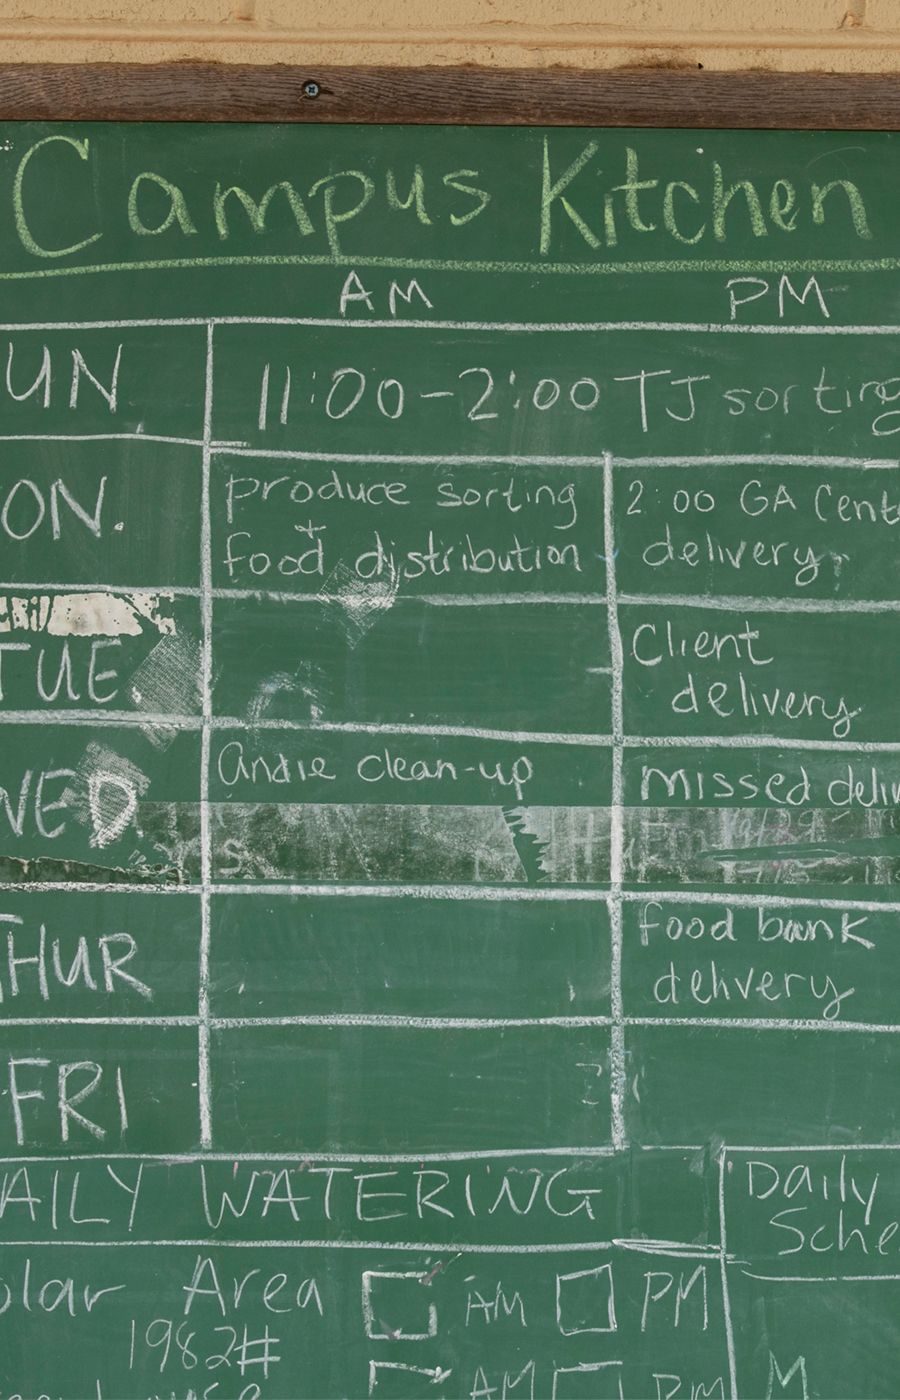 Campus Kitchen
AM PM
UN 11:00-2:00 TJ sorting
ON. produce sorting
+
food distribution
2:00 GA Cent
delivery
TUE Client
delivery
WED andie clean-up missed deliv
THUR food bank
delivery
FRI
AILY WATERING
Daily
Sche
olar Area AM PM
1982#
AM PM
M